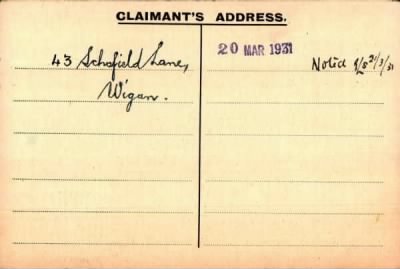 CLAIMANT'S ADDRESS.
43 Schofield Lane,
Wigan.
20 MAR 1931
Noted 21/3/31